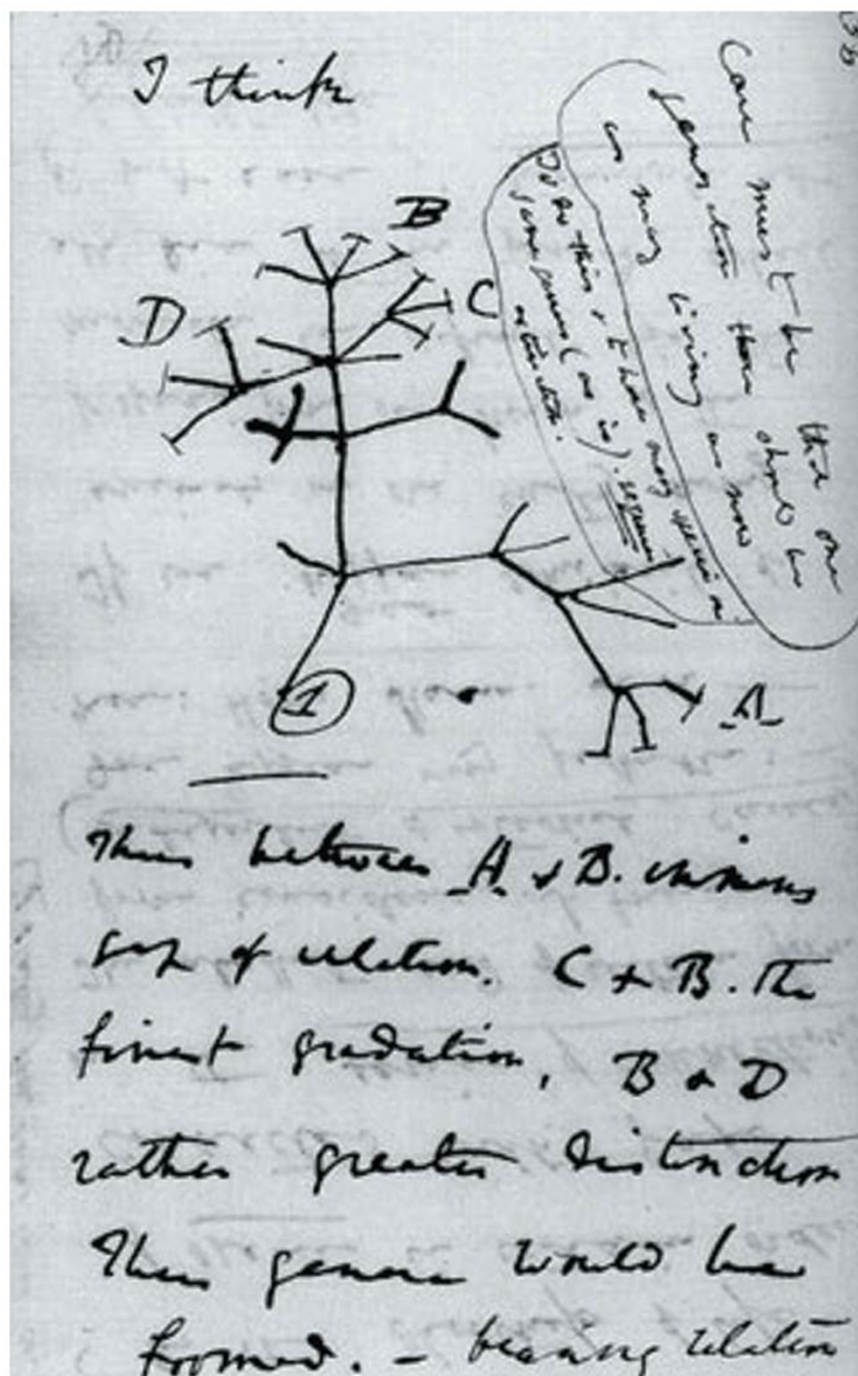 I think
B
C
D
A
1
Case must be that one
generation then should be
as many living as now
To do this & to have many species in
same genus (as is). requires
extinction.
Thus between A & B. immens
gap of relation. C & B. the
finest gradation, B & D
rather greater distinction
Thus genera would be
formed. — bearing relation
36